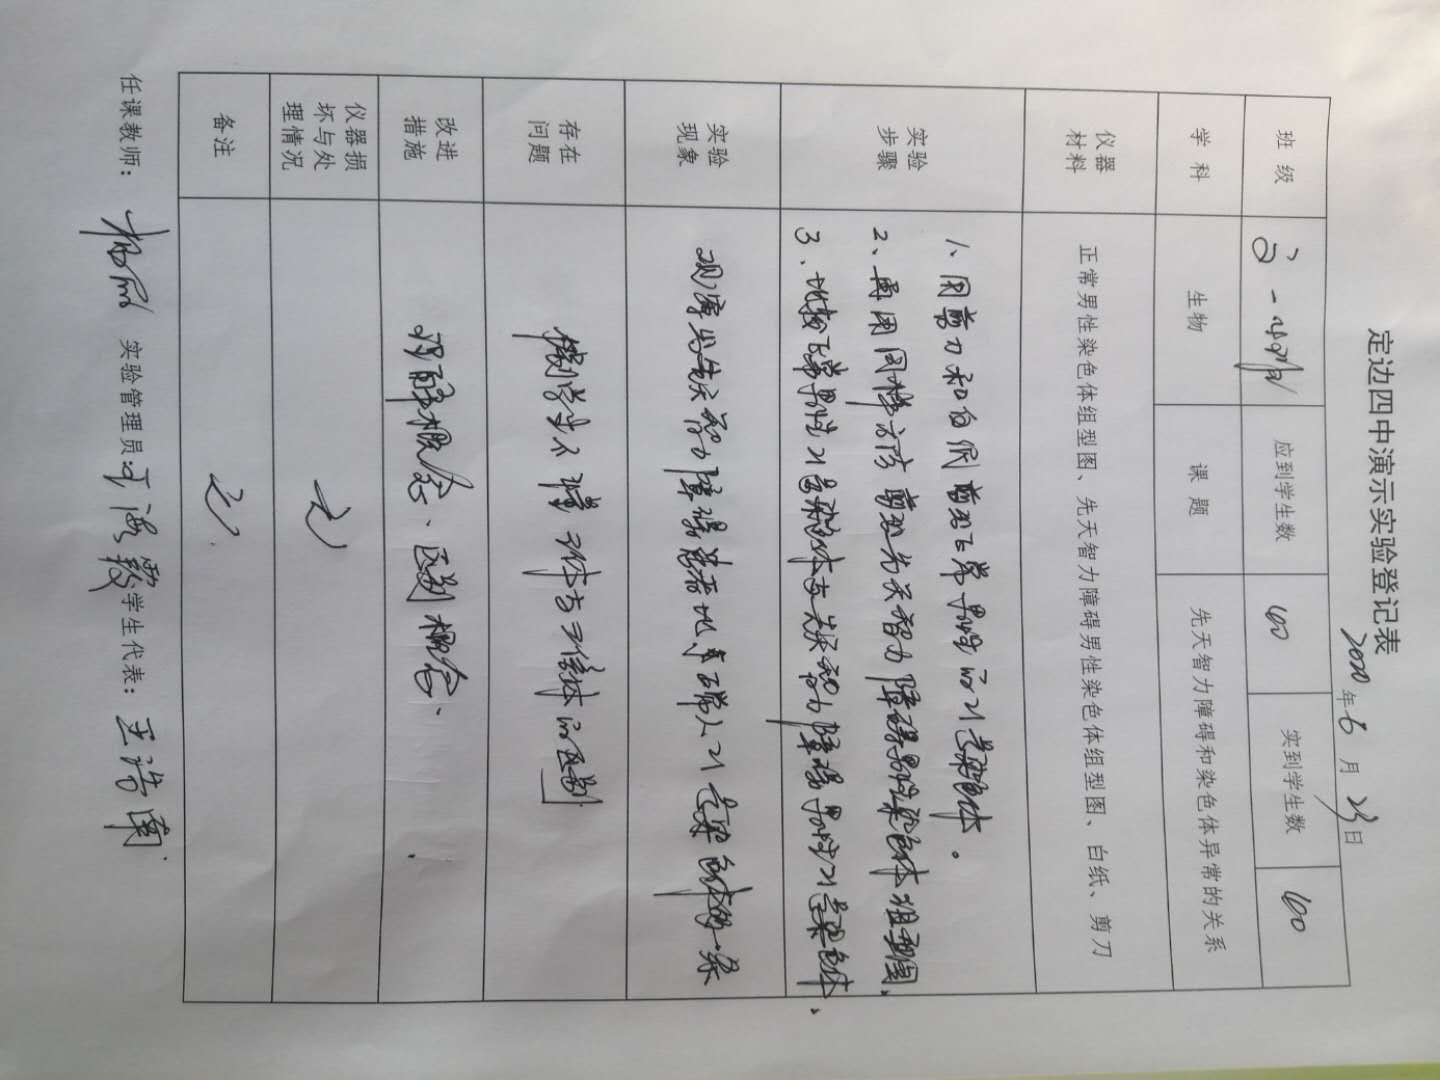 定边四中演示实验登记表
2020年6月23日
班级 高一 应到学生数 60 实到学生数 60
学科 生物 课题 先天智力障碍和染色体异常的关系
仪器材料 正常男性染色体组型图、先天智力障碍男性染色体组型图、白纸、剪刀
实验步骤
1、用剪刀和白纸剪下正常男性的21号染色体。
2、再用同样方法剪下先天智力障碍男性染色体组型图。
3、比较正常男性21号染色体与先天智力障碍男性21号染色体、
实验现象 观察先天智力障碍患者比正常人21号染色体多一条
存在问题 学生不懂 体与 体的区别
改进措施 概念、区别概念、
仪器损坏与处理情况 无
备注 无
任课教师： 实验管理员： 学生代表：王浩